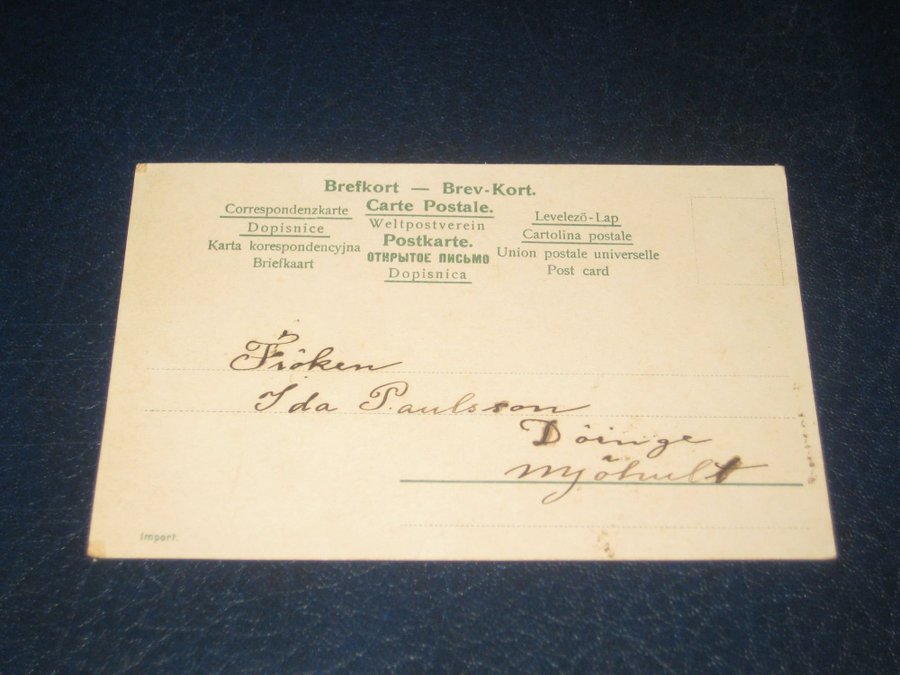 Brefkort — Brev-Kort.
Correspondenzkarte Carte Postale. Levelezõ-Lap
Dopisnice Weltpostverein Cartolina postale
Karta korespondencyjna Postkarte. Union postale universelle
Briefkaart ОТКРЫТОЕ ПИСЬМО Post card
Dopisnica
Fröken
Ida Paulsson
Döinge
Mjöhult
Import.